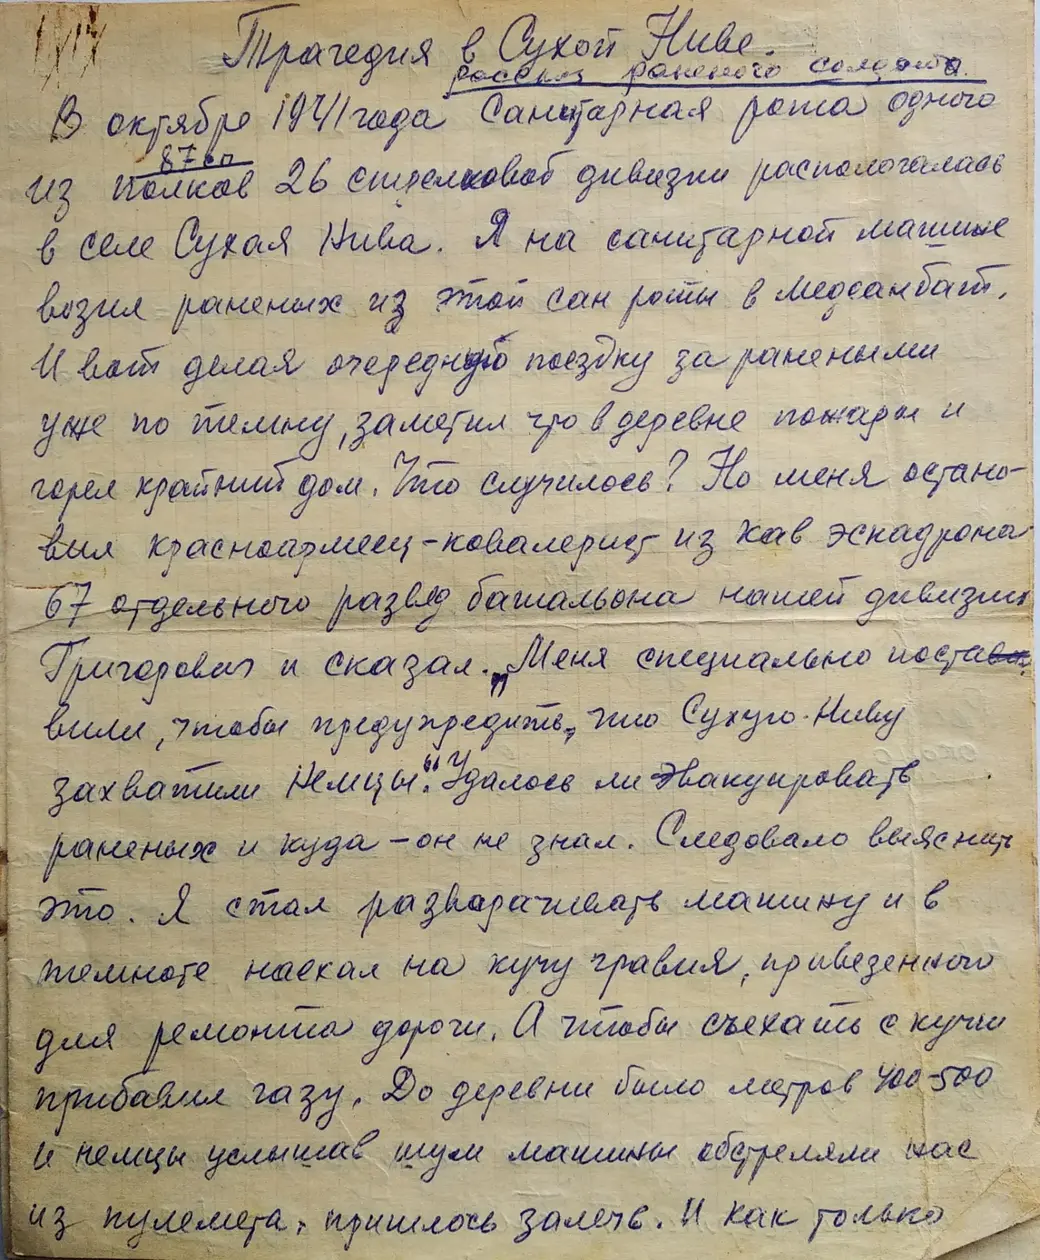 Трагедия в Сухой Ниве.
рассказ раненого солдата.
В октябре 1941 года Санитарная рота одного
87 сп
из полков 26 стрелковой дивизии распологалась
в селе Сухая Нива. Я на санитарной машине
возил раненых из этой сан роты в медсанбат.
И вот делая очередную поездку за ранеными
уже по темну, заметил что в деревне пожары и
горел крайний дом. Что случилось? Но меня остано-
вил красноармеец-ковалерист из кав эскадрона
67 отдельного развед батальона нашей дивизии
Григорович и сказал. „Меня специально поста
вили, чтобы предупредить, что Сухую-Ниву
захватили Немцы“. Удалось ли эвакуировать
раненых и куда – он не знал. Следовало выяснить
это. Я стал разварачивать машину и в
темноте наехал на кучу гравия, привезенного
для ремонта дороги. А чтобы съехать с кучи
прибавил газу. До деревни было метров 400-500
и немцы услышав шум машины обстреляли нас
из пулемета, пришлось залечь. И как только